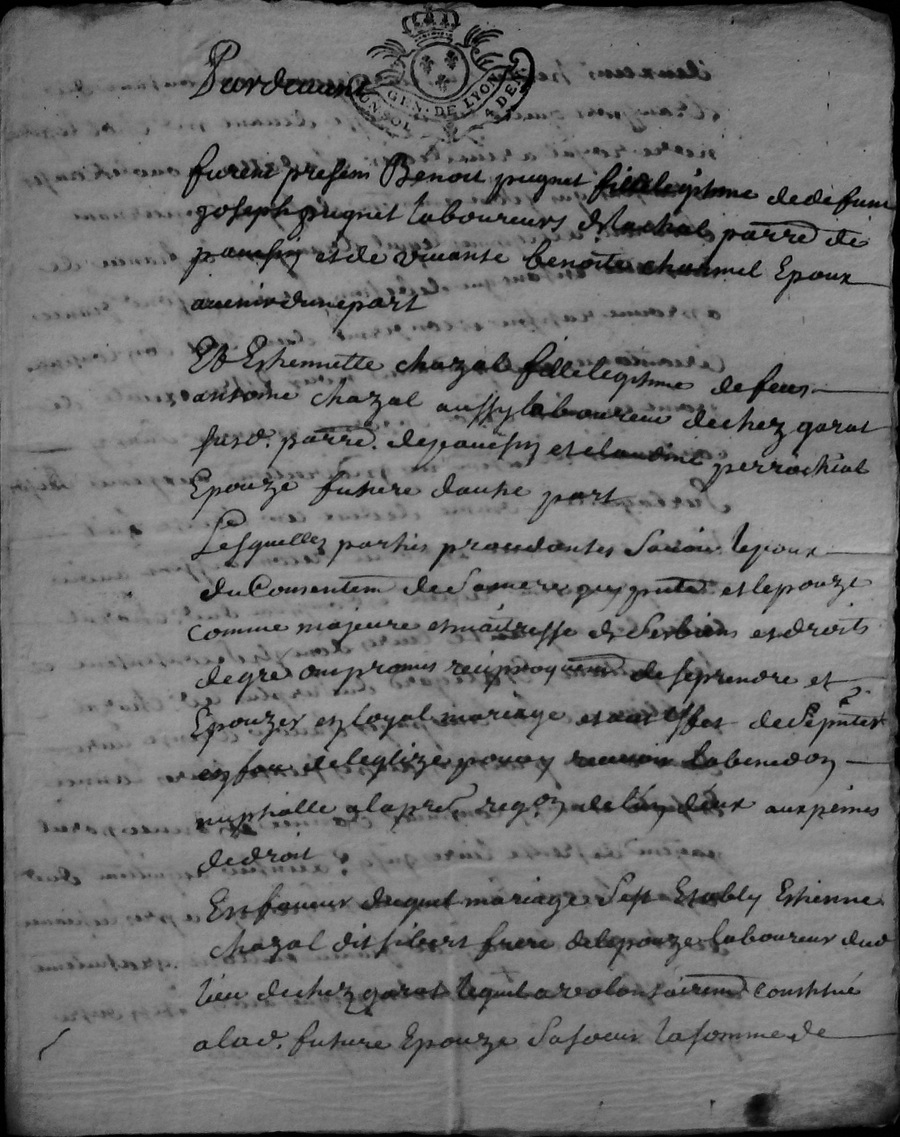 GEN. DE LYON
UN SOL 4 DEN.
Pardevant
furent presens Benoit pugnet fils legitime de defunt
joseph pugnet laboureurs de lachal parre de
panissie et de vivante benoite charmel Epoux
avenir dune part
Et Estiennette chazal fille legitime de feus
antoine chazal aussy laboureur de chez garat
susd. parre. de panissie et claudine perrachat
Epouze future dautre part
Lesquelles parties procedantes Savoir lepoux
du Consentem de Sa mere icy pnte et lepouze
comme majeure et maitresse de Ses biens et droits
de gre ont promis reciproquem de se prendre et
Epouzer en loyal mariage et a cet effet de Se pnter
en face de leglize pour y recevoir la benedon
nuptialle a la pre reqon de lun deux aux peines
de droit
En faveur duquel mariage Sest Etably Estienne
chazal dit sibert frere de lepouze laboureur dud
lieu de chez garat lequel a volontairem constitué
a lad. future Epouze Sa soeur la somme de